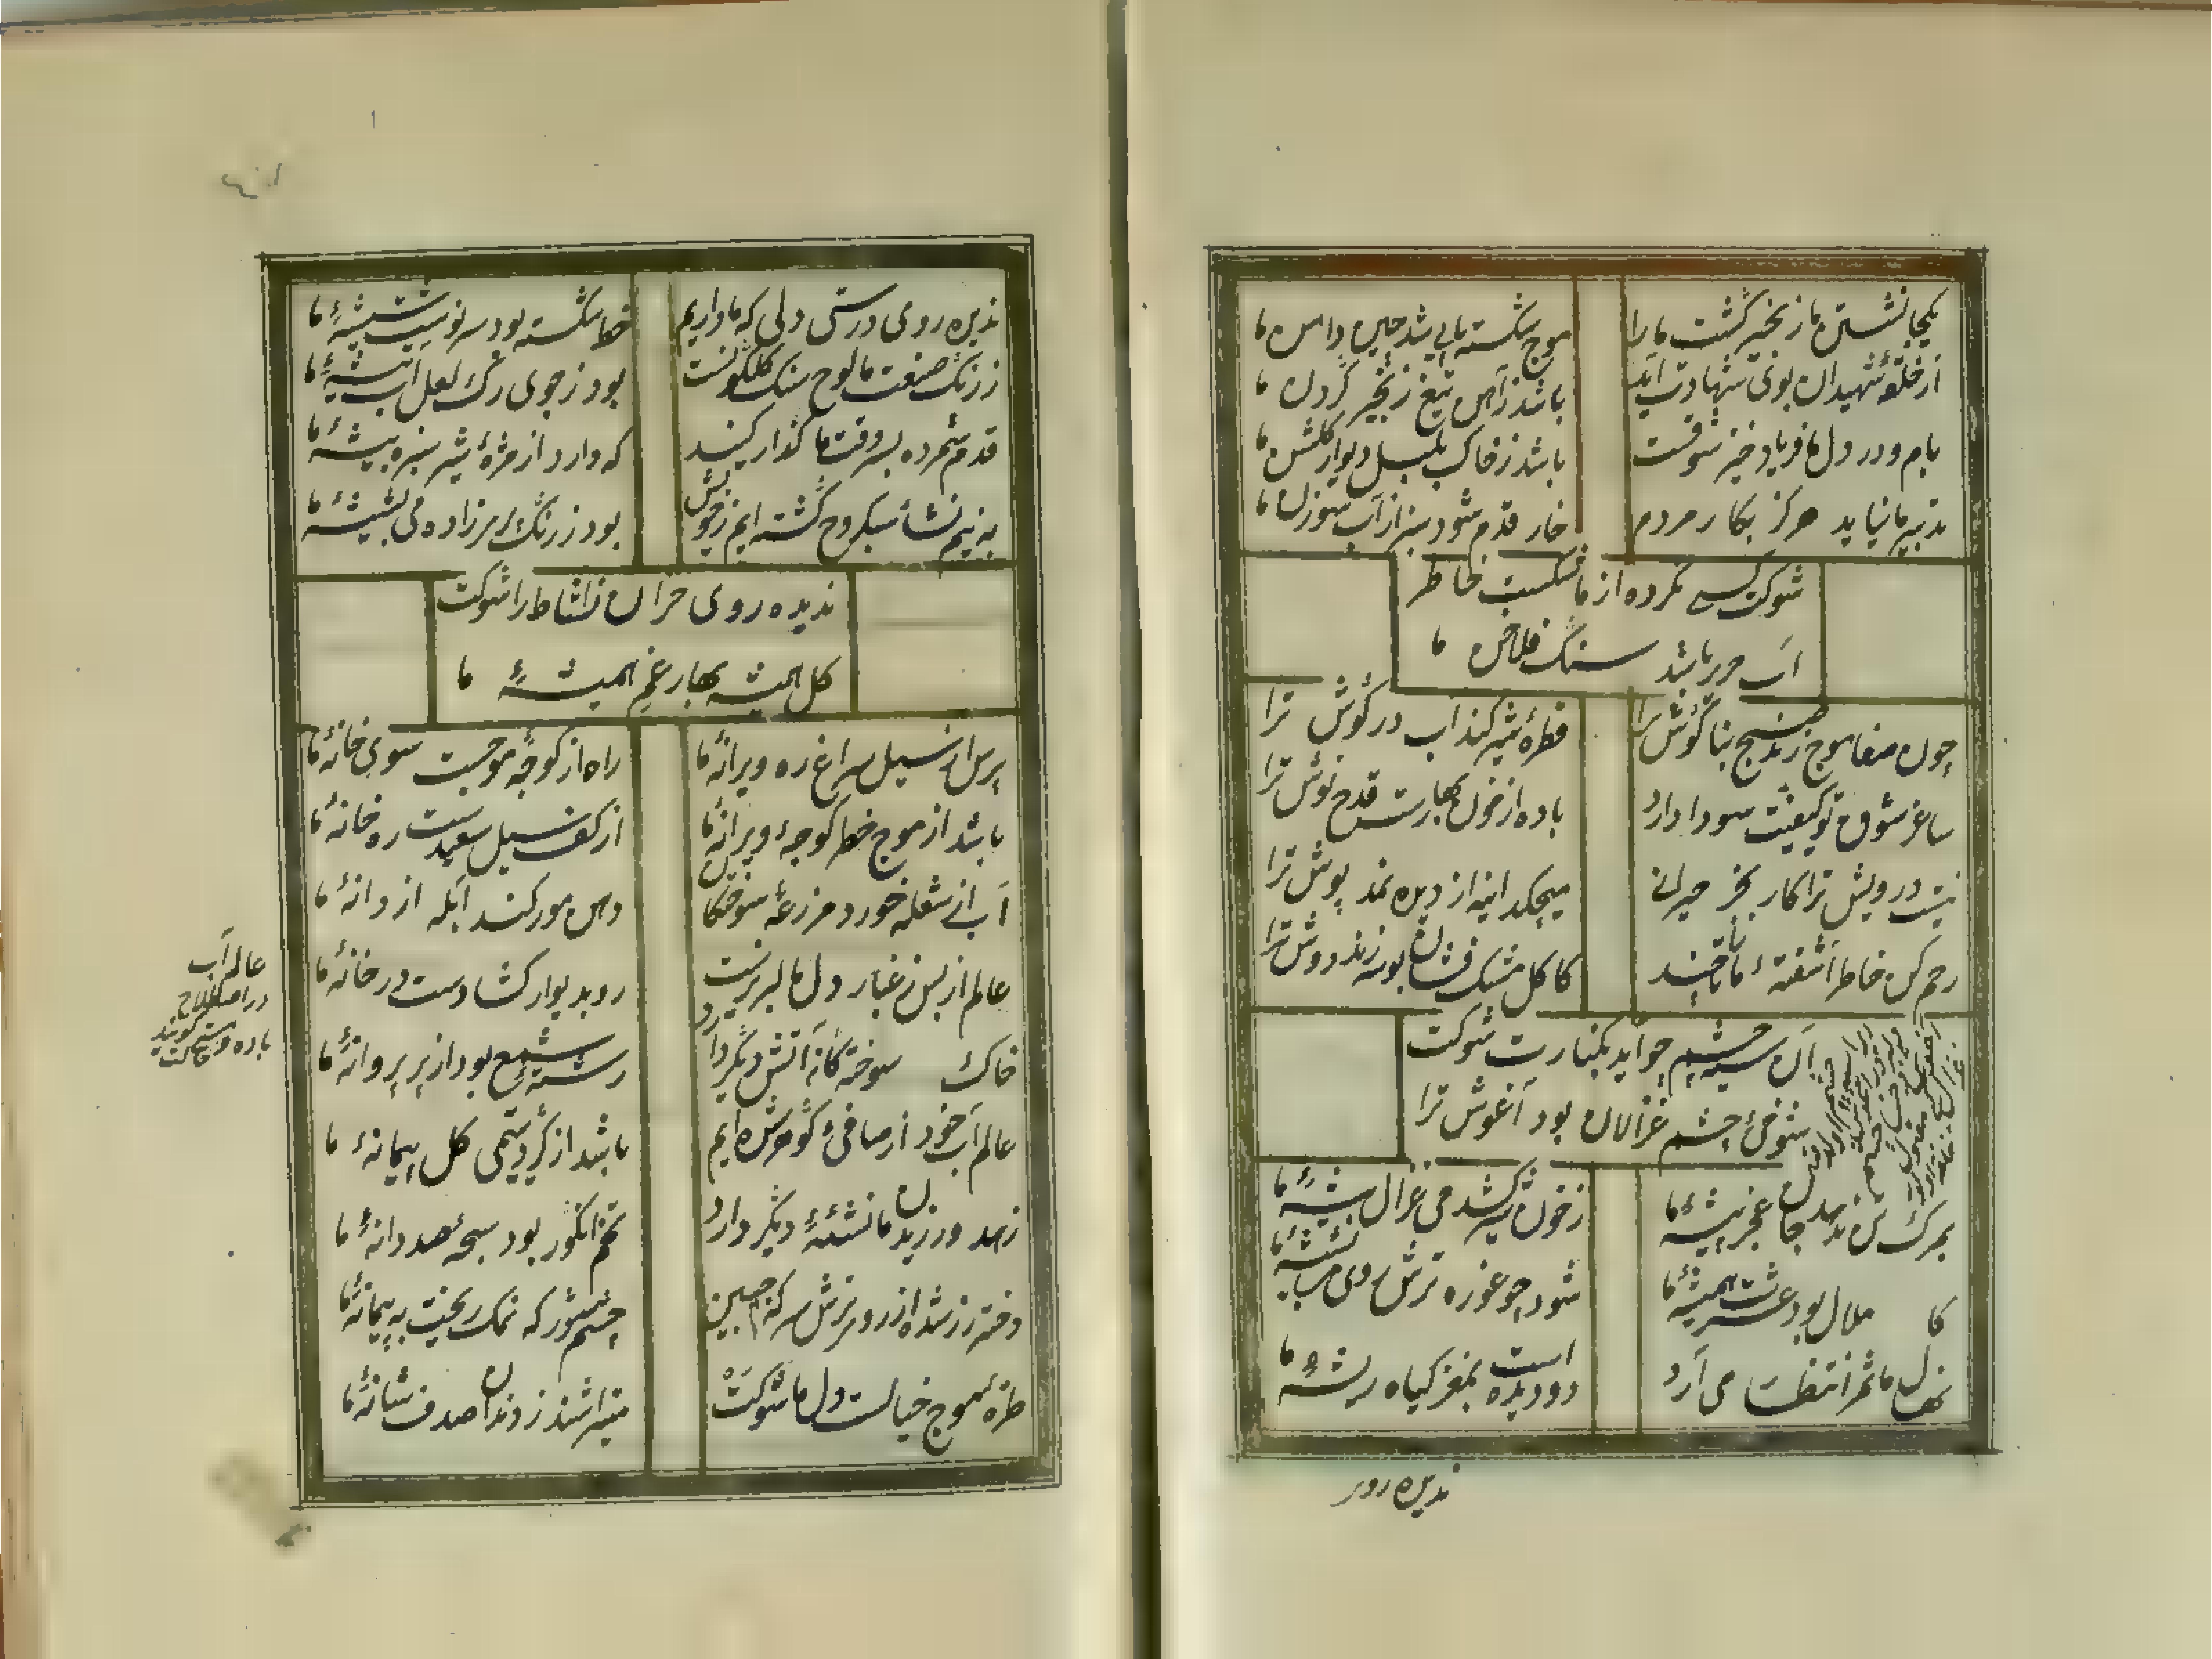 یکجا نشستن ما زنجیر گشت ما را
موج شکسته پایی شد چین دامن ما
از حلقهٔ شهیدان بوی شهادت آید
باشد ز آهن تیغ زنجیر گردن ما
بام و در دل ما فریاد خیز شوقست
باشد ز خاک بلبل دیوار گلشن ما
تدبیر ما نیاید هرگز بکار مردم
خار قدم شود سبز از آب سوزن ما
شوکت کسی نکرده از ما شکست خاطر
آب کهر باشد سنگ فلاخن ما
چون صفا موج زند صبح بناگوش ترا
قطرهٔ شیر کند آب در گوش ترا
ساغر شوق تو کیفیت سودا دارد
باده از خون بهارست قدح نوش ترا
نیست درویش ترا کار بجز حیرانی
میچکد آینه از دیدهٔ نمد پوش ترا
رحم کن خاطر آشفتهٔ ما تا چند
کاکل مشک فشان بوسه زند دوش ترا
آن سیه چشم چو آید بکنارت شوکت
شوخی چشم غزالان بود آغوش ترا
بمرک تن ندهد جان عجز پیشهٔ ما
ز خون شیر کشد می غزال بیشهٔ ما
ملال بود عشرت همیشهٔ ما
شود چو غوره ترش روی می بشیشهٔ ما
نهال ما ثمر انتظار می آرد
دو دیده است بمغز گیاه ریشهٔ ما
ندیده روی
ندیده روی درستی دلی که ما داریم
خط شکسته بود سرنوشت شیشهٔ ما
ز رنگ صنعت ما لوح سنگ گلگونست
بود ز جوی رگ لعل آب تیشهٔ ما
قدم شمرده بسروقت ما گذار کنید
که دارد از مژهٔ شیر سبزه بیشهٔ ما
به نیم نشأ سبکروح گشته ایم ز خویش
بود ز رنگ پریزاده می بشیشهٔ ما
ندیده روی خزان نشاط را شوکت
گل همیشه بهار غم همیشهٔ ما
پرس از سیل سراغ ره ویرانهٔ ما
راه از کوچهٔ موجست سوی خانهٔ ما
باشد از موج خطر کوچهٔ ویرانهٔ ما
از کف سیل سفیدست ره خانهٔ ما
آب از شعله خورد مزرعهٔ سوختگان
دهن مور کند آبله از دانهٔ ما
عالم از بس ز غبار دل ما لبریزست
رو بدیوار گشادست در خانهٔ ما
خاک سوختگان آتش دیگر دارد
رشتهٔ شمع بود از پر پروانهٔ ما
عالم آب خود از صافی گوهر شده ایم
باشد از گرد یتیمی گل پیمانهٔ ما
زهد ورزیدن ما نشئهٔ دیگر دارد
تخم انگور بود سبحهٔ صد دانهٔ ما
دختر رز شد از رو ترش سرکه جبین
چشم شور که نمک ریخت به پیمانهٔ ما
طرهٔ موج خیالست دل ما شوکت
میتراشند ز دندان صدف شانهٔ ما
عالم آب
در اصطلاح
باده